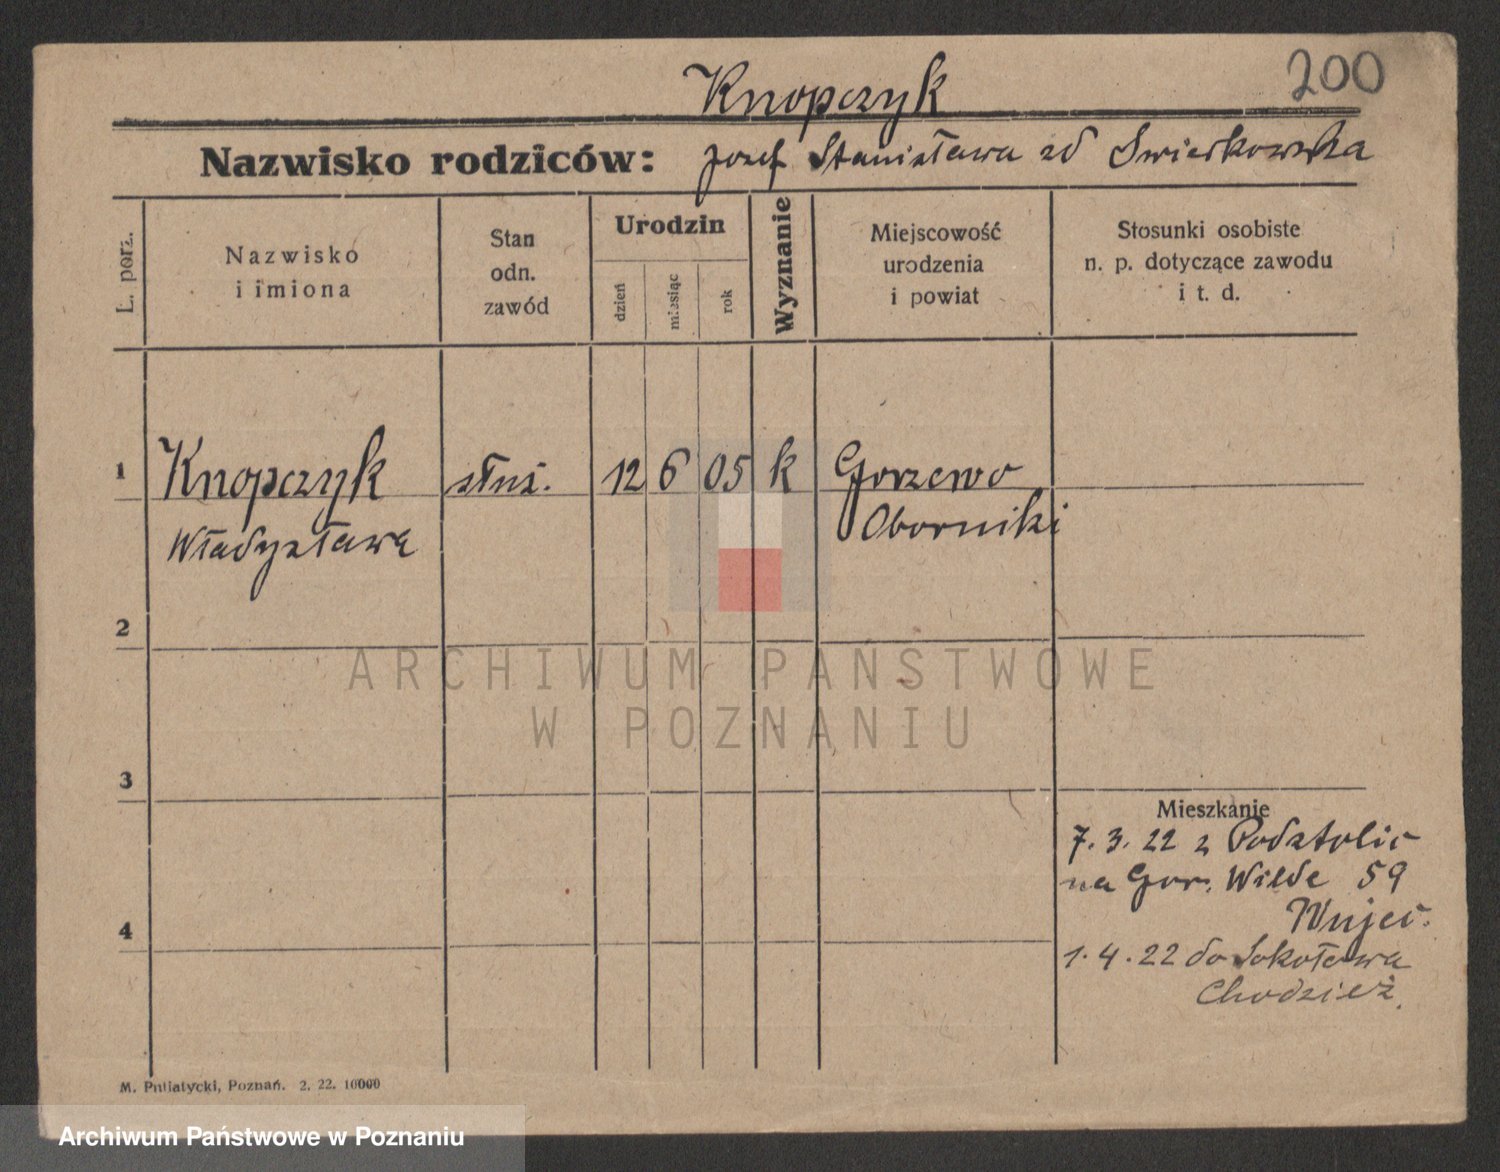 Knopczyk
200
Nazwisko rodziców: Jozef Stanisława zd Swierkowska
L. porz.
Nazwisko
i imiona
Stan
odn.
zawód
Urodzin
dzień
miesiąc
rok
Wyznanie
Miejscowość
urodzenia
i powiat
Stosunki osobiste
n. p. dotyczące zawodu
i t. d.
1 Knopczyk służ. 12 6 05 k Gorzewo
Władysława Oborniki
2
3
4
Mieszkanie
7. 3. 22 z Podstolic
na Gór. Wilde 59
Wujec.
1. 4. 22 do Sokołowa
Chodzież.
ARCHIWUM PAŃSTWOWE
W POZNANIU
Poznań. 2. 22. 10000
Archiwum Państwowe w Poznaniu